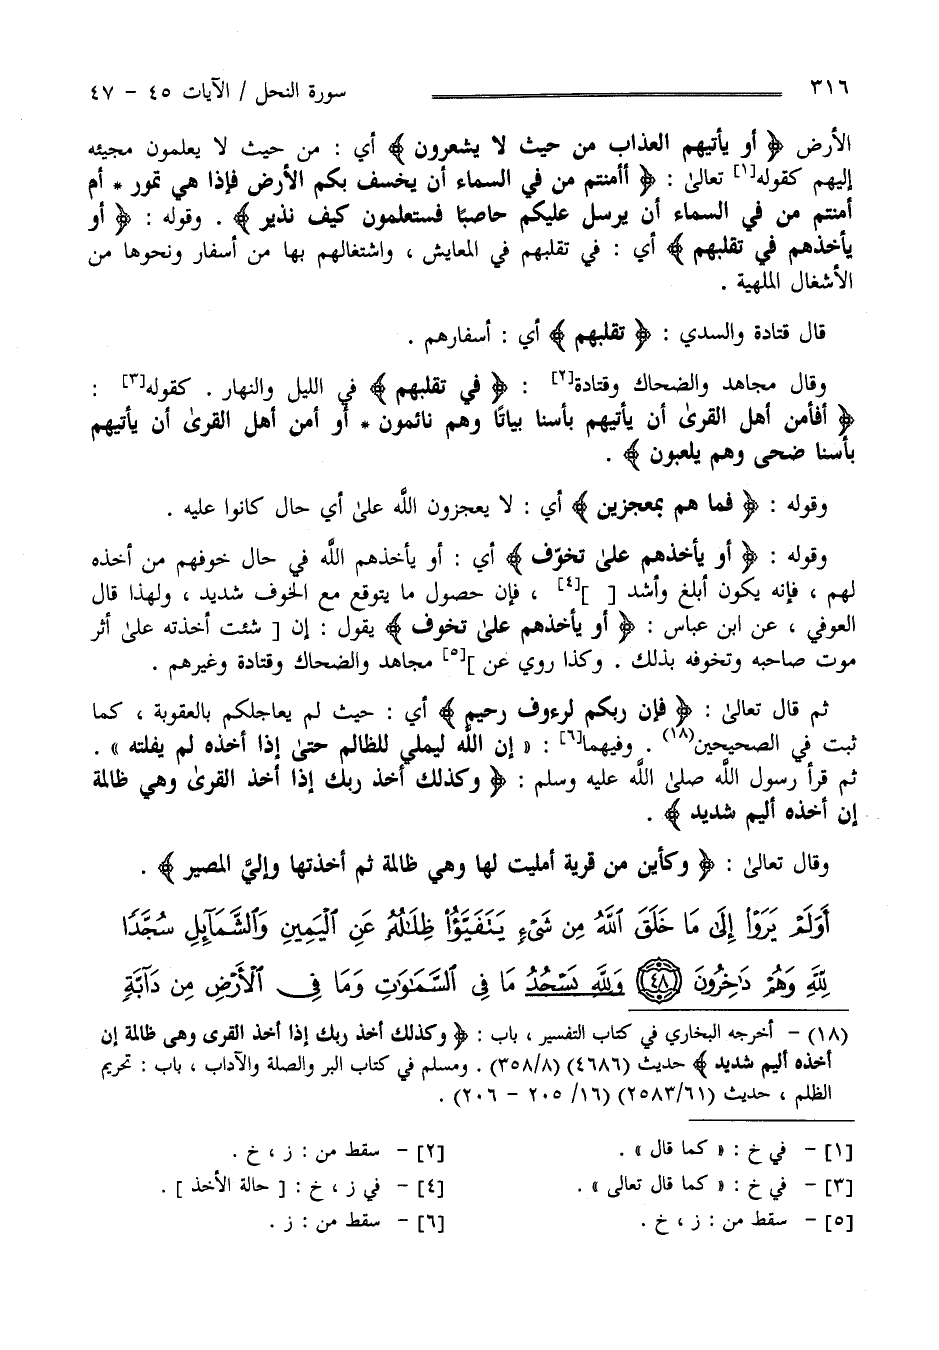 ٣١٦ سورة النحل / الآيات ٤٥ - ٤٧
الأرض ﴿ أو يأتيهم العذاب من حيث لا يشعرون ﴾ أي : من حيث لا يعلمون مجيئه
إليهم كقوله[١] تعالىٰ : ﴿ أأمنتم من في السماء أن يخسف بكم الأرض فإذا هي تمور * أم
أمنتم من في السماء أن يرسل عليكم حاصبًا فستعلمون كيف نذير ﴾ . وقوله : ﴿ أو
يأخذهم في تقلبهم ﴾ أي : في تقلبهم في المعايش ، واشتغالهم بها من أسفار ونحوها من
الأشغال الملهية .
قال قتادة والسدي : ﴿ تقلبهم ﴾ أي : أسفارهم .
وقال مجاهد والضحاك وقتادة[٢] : ﴿ في تقلبهم ﴾ في الليل والنهار . كقوله[٣] :
﴿ أفأمن أهل القرىٰ أن يأتيهم بأسنا بياتًا وهم نائمون * أو أمن أهل القرىٰ أن يأتيهم
بأسنا ضحى وهم يلعبون ﴾ .
وقوله : ﴿ فما هم بمعجزين ﴾ أي : لا يعجزون اللَّه علىٰ أي حال كانوا عليه .
وقوله : ﴿ أو يأخذهم علىٰ تخوّف ﴾ أي : أو يأخذهم اللَّه في حال خوفهم من أخذه
لهم ، فإنه يكون أبلغ وأشد [ ][٤] ، فإن حصول ما يتوقع مع الخوف شديد ، ولهذا قال
العوفي ، عن ابن عباس : ﴿ أو يأخذهم علىٰ تخوف ﴾ يقول : إن [ شئت أخذته علىٰ أثر
موت صاحبه وتخوفه بذلك . وكذا روي عن ][٥] مجاهد والضحاك وقتادة وغيرهم .
ثم قال تعالىٰ : ﴿ فإن ربكم لرءوف رحيم ﴾ أي : حيث لم يعاجلكم بالعقوبة ، كما
ثبت في الصحيحين(١٨) . وفيهما[٦] : « إن اللَّه ليملي للظالم حتىٰ إذا أخذه لم يفلته » .
ثم قرأ رسول اللَّه صلىٰ اللَّه عليه وسلم : ﴿ وكذلك أخذ ربك إذا أخذ القرىٰ وهي ظالمة
إن أخذه أليم شديد ﴾ .
وقال تعالىٰ : ﴿ وكأين من قرية أمليت لها وهي ظالمة ثم أخذتها وإليَّ المصير ﴾ .
أَوَلَمْ يَرَوْا۟ إِلَىٰ مَا خَلَقَ ٱللَّهُ مِن شَىْءٍ يَتَفَيَّؤُا۟ ظِلَـٰلُهُۥ عَنِ ٱلْيَمِينِ وَٱلشَّمَآئِلِ سُجَّدًا
لِّلَّهِ وَهُمْ دَٰخِرُونَ ﴿٤٨﴾ وَلِلَّهِ يَسْجُدُ مَا فِى ٱلسَّمَـٰوَٰتِ وَمَا فِى ٱلْأَرْضِ مِن دَآبَّةٍ
(١٨) - أخرجه البخاري في كتاب التفسير ، باب : ﴿ وكذلك أخذ ربك إذا أخذ القرى وهى ظالمة إن
أخذه أليم شديد ﴾ حديث (٤٦٨٦) (٣٥٨/٨) . ومسلم في كتاب البر والصلة والآداب ، باب : تحريم
الظلم ، حديث (٢٥٨٣/٦١) (١٦/ ٢٠٥ - ٢٠٦) .
[١] - في خ : « كما قال » . [٢] - سقط من : ز ، خ .
[٣] - في خ : « كما قال تعالى » . [٤] - في ز ، خ : [ حالة الأخذ ] .
[٥] - سقط من : ز ، خ . [٦] - سقط من : ز .